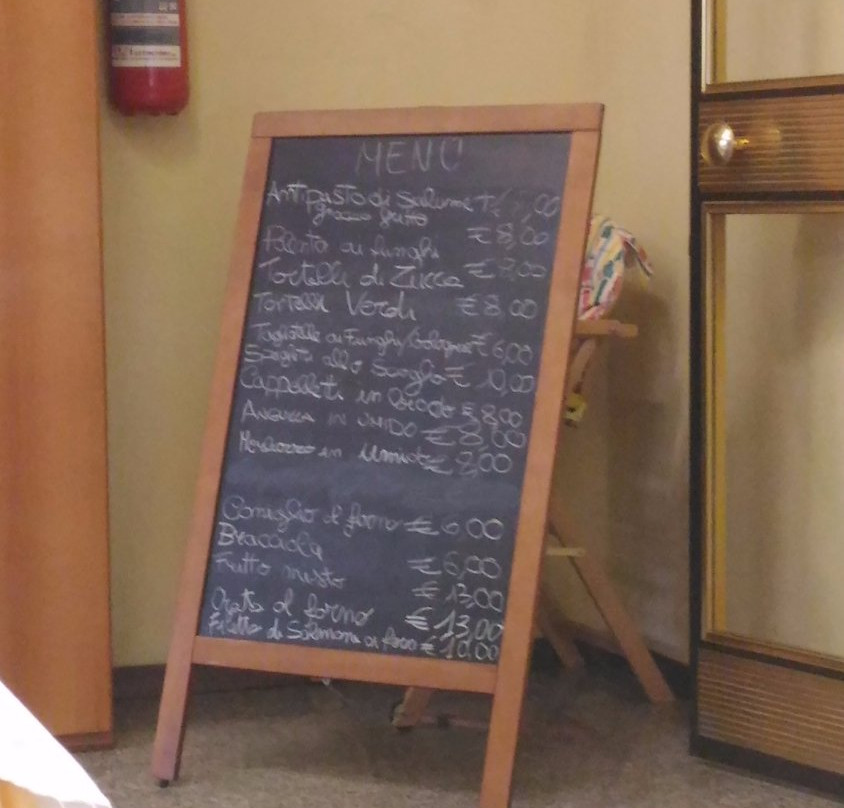 MENU
Antipasto di salume + € 7,00
gnocco fritto € 8,00
Polenta ai funghi
Tortelli di Zucca € 8,00
Tortelli Verdi € 8,00
Tagliatelle ai Funghi/bolognese € 6,00
Spaghetti allo Scoglio € 10,00
Cappelletti in Brodo € 8,00
ANGUILLA IN UMIDO € 8,00
Merluzzo in umido € 8,00
Coniglio al forno € 6,00
Bracciola € 6,00
Fritto misto € 13,00
Orata al forno € 13,00
Filetto di Salmone al forno € 10,00